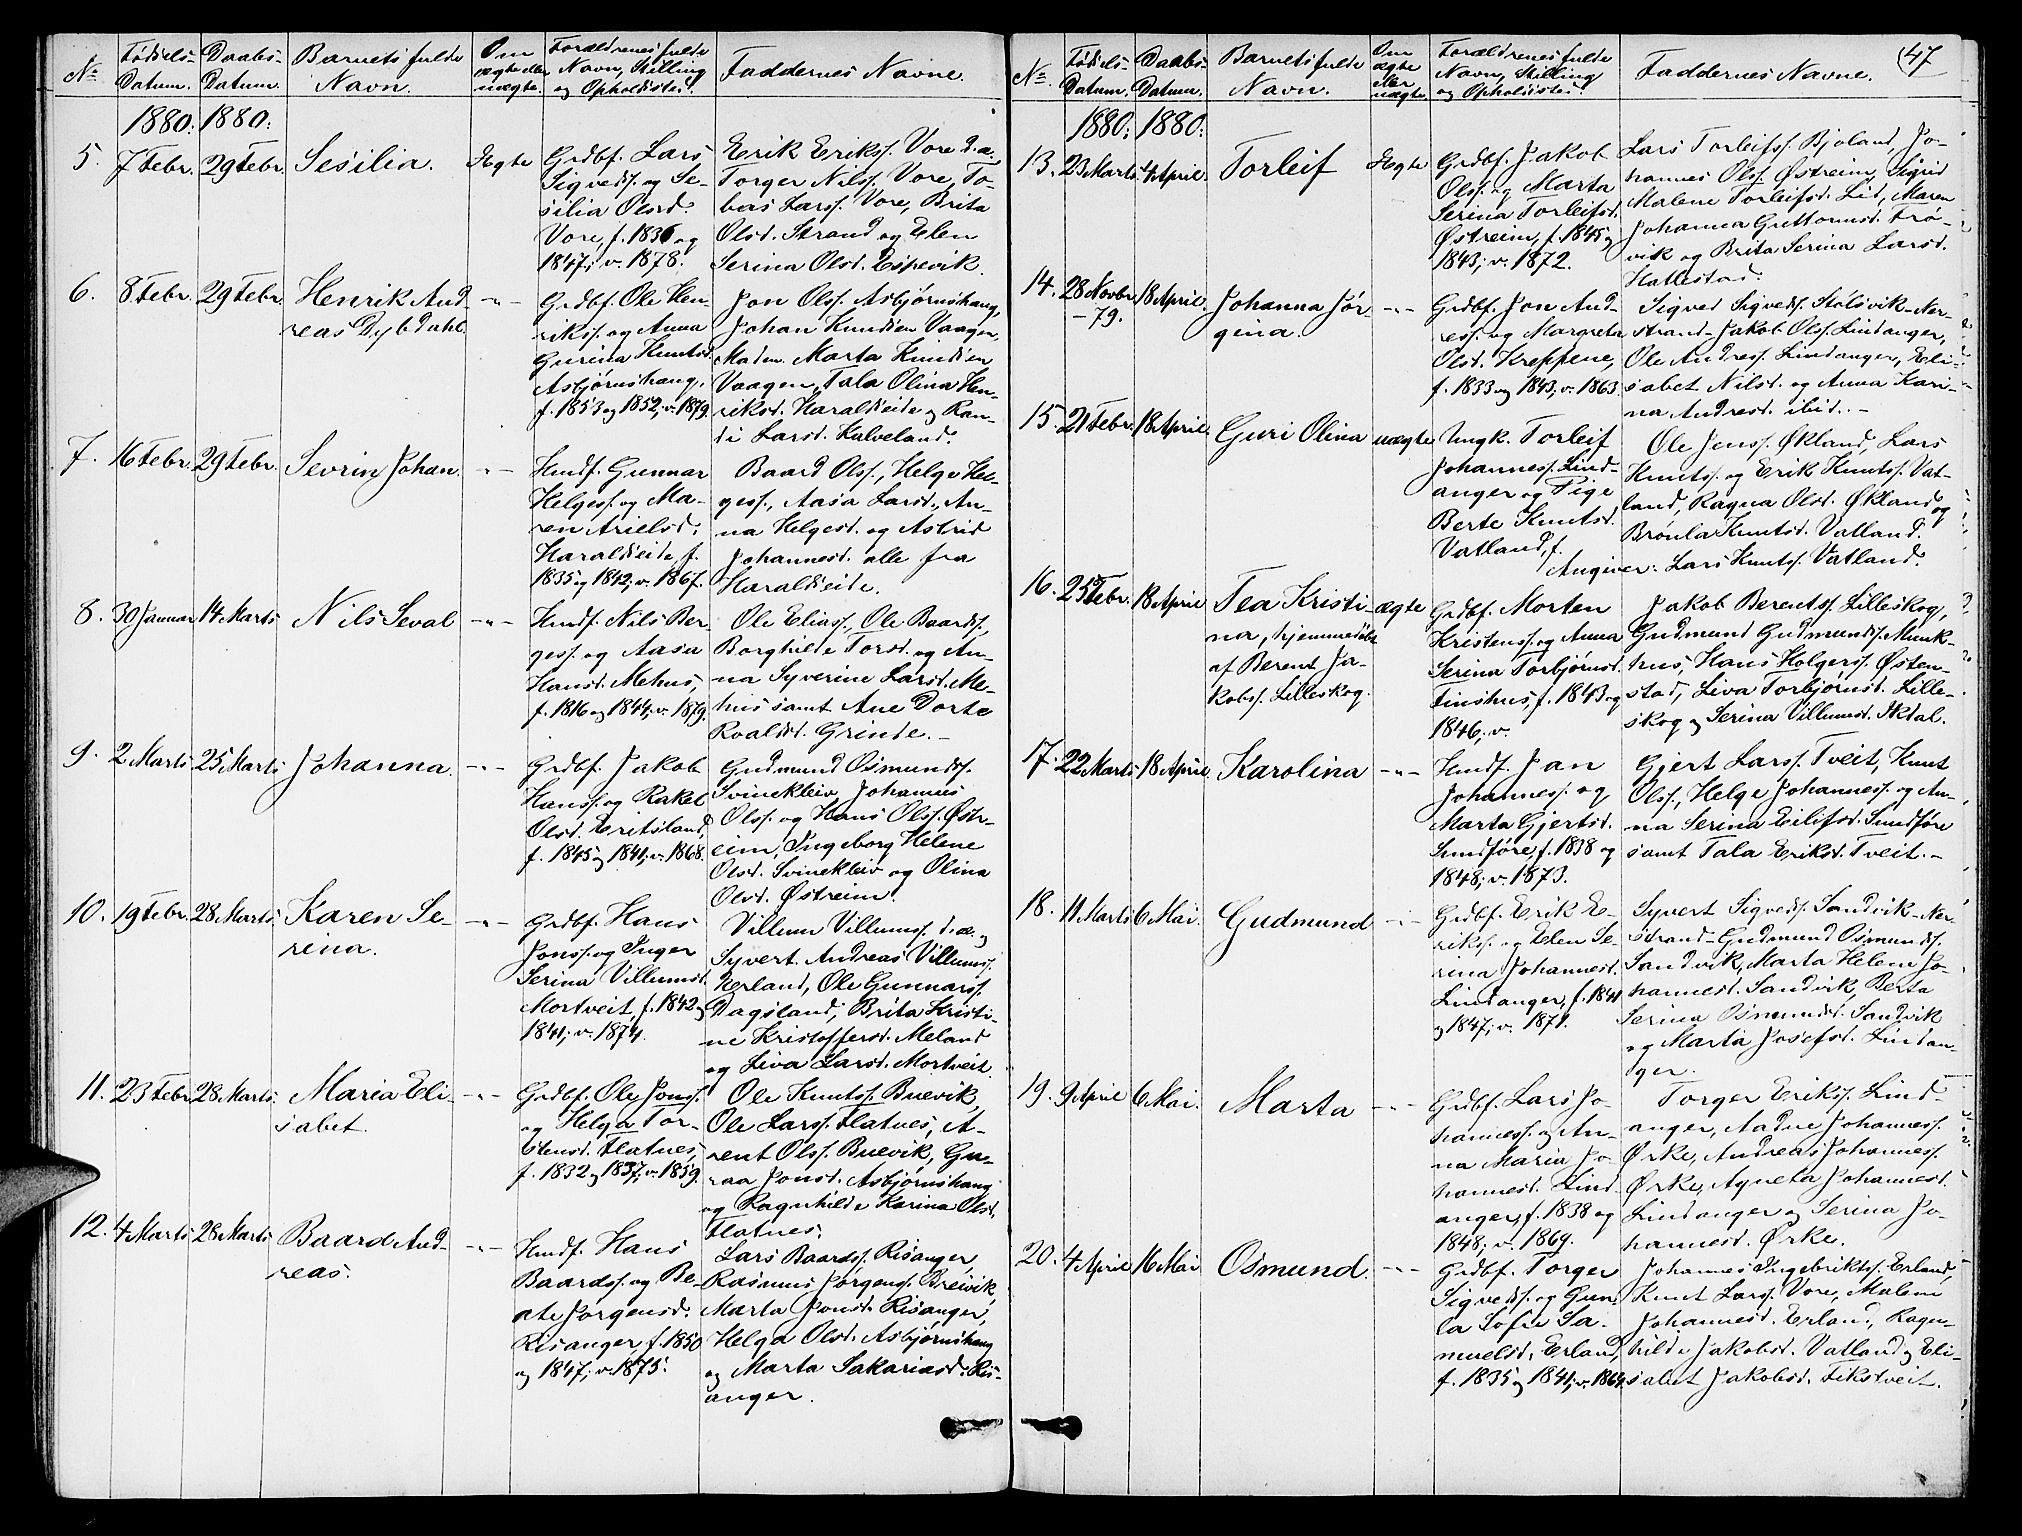 No.
Fødsels-
Datum.
Daabs-
Datum.
Barnets fulde
Navn.
Om
ægte eller
uægte.
Forældrenes fulde
Navn, Stilling
og Opholdssted.
Faddernes Navne.
1880:
1880:
5.
7 Febr.
29 Febr.
Sesilia.
Ægte
Grdbf. Lars
Sigveds. og Se-
silia Olsd.
Vore, f. 1836 og
1847; v. 1878.
Erik Eriks. Vore d. æ.
Torger Nils. Vore, To-
bias Lars. Vore, Brita
Olsd. Strand og Elen
Serina Olsd. Espevik.
6.
8 Febr.
29 Febr.
Henrik And-
reas Dybdahl.
-"-
Grdbf. Ole Hen-
riks. og Anna
Gurina Knutsd.
Asbjørnshaug,
f. 1853 og 1852; v. 1879.
Jon Ols. Asbjørnshaug,
Johan Knudsen Vaagen,
Madm. Marta Knudsen
Vaagen, Tala Olina Hen-
riksd. Haraldseide og Ran-
di Larsd. Kalveland.
7.
16 Febr.
29 Febr.
Sevrin Johan.
-"-
Hmdf. Gunnar
Helges. og Ma-
ren Arielsd.
Haraldseide f.
1835 og 1842; v. 1867.
Baard Ols., Helge Hel-
ges., Aasa Larsd., An-
na Helgesd. og Astrid
Johannesd. alle fra
Haraldseide.
8.
30 Januar
14 Marts
Nils Seval
-"-
Hmdf. Nils Ber-
ges. og Aasa
Hansd. Mehus,
f. 1816 og 1844; v. 1879.
Ole Elias., Ole Baards.,
Borghilde Torsd. og An-
na Syverine Larsd. Me-
hus samt Ane Dorte
Roaldsd. Grinde.-
9.
2 Marts
25 Marts
Johanna.
-"-
Grdbf. Jakob
Hans. og Rakel
Olsd. Eritsland,
f. 1845 og 1841; v. 1868.
Gudmund Osmunds.
Svinekleiv, Johannes
Ols. og Hans Ols. Østr-
eim, Ingeborg Helene
Olsd. Svinekleiv og Olina
Olsd. Østreim.
10.
19 Febr.
28 Marts
Karen Se-
rina.
-"-
Grdbf. Hans
Jons. og Inger
Serina Villumsd.
Mortveit, f. 1842 og
1841; v. 1874.
Villum Villums. d. æ. og
Syvert Andreas Villums.
Nerland, Ole Gunnars.
Dagsland, Brita Kristi-
ne Kristoffersd. Meland
og Liva Larsd. Mortveit.
11.
23 Febr.
28 Marts
Maria Eli-
sabet.
-"-
Grdbf. Ole Jons.
og Helga Tor-
stensd. Flatnes,
f. 1832 og 1837; v. 1859.
Ole Knuts. Buevik,
Ole Lars. Flatnes, A-
rent Ols. Buevik, Gu-
raa Jonsd. Asbjørnshaug
og Ragnhilde Karina Olsd.
Flatnes.
12.
4 Marts
28 Marts
Baard And-
reas.
-"-
Hmdf. Hans
Baards. og Be-
ate Jørgensd.
Risanger, f. 1850
og 1847; v. 1875.
Lars Baards. Risanger,
Rasmus Jørgens. Breivik,
Marta Jonsd. Risanger,
Helga Olsd. Asbjørnshaug
og Marta Sakariasd. Ris-
anger.
47
No.
Fødsels-
Datum.
Daabs-
Datum.
Barnets fulde
Navn.
Om
ægte
eller
uægte.
Forældrenes fulde
Navn, Stilling
og Opholdssted.
Faddernes Navne.
1880:
1880:
13.
23 Marts
4 April.
Torleif
Ægte
Grdbf. Jakob
Ols. og Marta
Serina Torleifsd.
Østreim, f. 1845 og
1843; v. 1872.
Lars Torleifs. Bjoland, Jo-
hannes Ols. Østreim, Sigrid
Malene Torleifsd. Lid, Maren
Johanna Guttormsd. Frø-
vik og Brita Serina Larsd.
Hattestad.
14.
28 Novbr.
-79.
18 April.
Johanna Jør-
gina.
-"-
Grdbf. Jon And-
res. og Margreta
Olsd. Kreppene,
f. 1833 og 1843; v. 1863
Sigved Sigveds. Stølsvik-Ner-
strand-Jakob Ols. Lindanger,
Ole Andres. Lindanger, Eli-
sabet Nilsd. og Anna Kari-
na Andresd. ibid.-
15.
21 Febr.
18 April.
Guri Olina
uægte
Ungk. Torleif
Johannes. Lind-
anger og Pige
Berte Knutsd.
Vatland, f.
Ole Jens. Økland, Lars
Knuts. og Erik Knuts. Vat-
land, Ragna Olsd. Økland og
Brønla Knutsd. Vatland.
Angiver: Lars Knuts. Vatland.
16.
25 Febr.
18 April
Tea Kristi-
na, hjemmedøbt
af Berent Ja-
kobs. Lilleskog.
ægte
Grdbf. Morten
Kristens. og Anna
Serina Torbjørnsd.
Finshus, f. 1843 og
1846; v.
Jakob Berents. Lilleskog,
Gudmund Gudmunds. Munk-
hus, Hans Holgers. Østen-
stad, Liva Torbjørnsd. Lille-
skog og Serina Villumsd. Iktal.
17.
22 Marts
18 April.
Karolina
-"-
Hmdf. Jan
Johannes. og
Marta Gjertsd.
Sundføre, f. 1838 og
1848; v. 1873.
Gjert Lars. Tveit, Knut
Ols., Helge Johannes. og An-
na Serina Eilifsd. Sundføre
samt Tala Eriksd. Tveit.-
18.
11 Marts
6 Mai.
Gudmund
-"-
Grdbf. Erik E-
riks. og Elen Se-
rina Johannesd.
Lindanger, f. 1841
og 1847; v. 1871.
Syvert Sigveds. Sandvik-Ner-
strand-Gudmund Osmunds.
Sandvik, Marta Helene Jo-
hannesd. Sandvik, Berta
Serina Osmundsd. Sandvik
og Marta Josefsd. Lindan-
ger.
19.
9 April
6 Mai.
Marta
-"-
Grdbf. Lars Jo-
hannes. og An-
na Maria Jo-
hannesd. Lind-
anger, f. 1838 og
1848; v. 1869.
Torger Eriks. Lind-
anger, Aadne Johannes.
Ørke, Andreas Johannes.
Ørke, Agneta Johannesd.
Lindanger og Serina Jo-
hannesd. Ørke.
20.
4 April
16 Mai
Osmund.
-"-
Grdbf. Torger
Sigveds. og Gun-
la Sofie Sa-
muelsd. Erland,
f. 1835 og 1841; v. 1864.
Johannes Ingebrikts. Erland,
Knut Lars. Vore, Malene
Johannesd. Erland, Ragn-
hilde Jakobsd. Vatland og Eli-
sabet Jakobsd. Fikstveit.